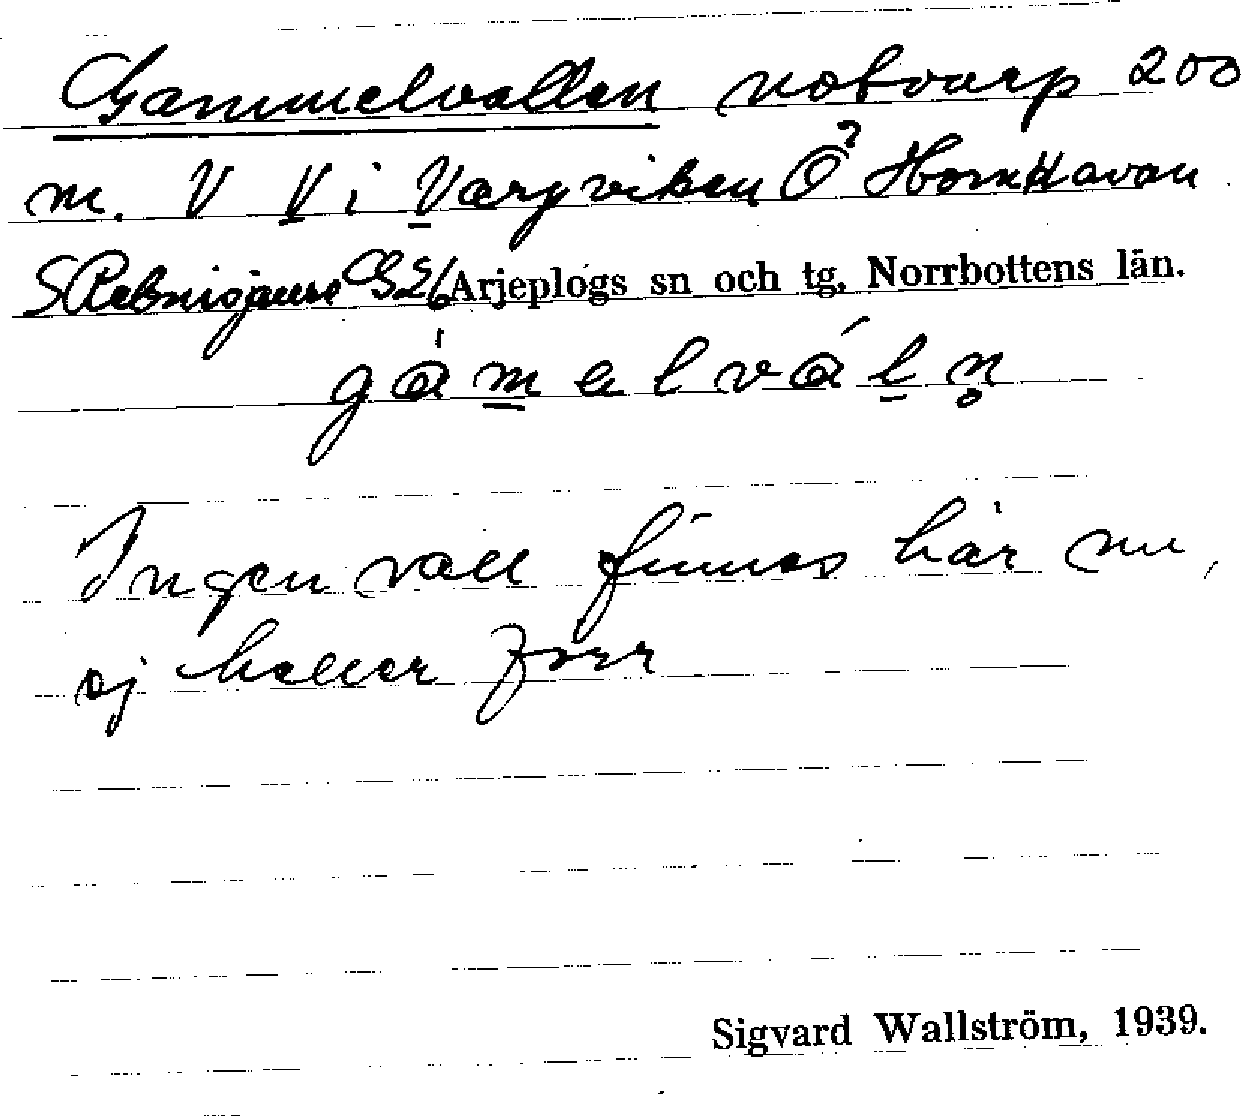 Gammelvallen notvarp 200
m. V V i Vargviken Ö? HornHavan
S Rebnisjaure Arjeplogs sn och tg. Norrbottens län.
gàmelváln̥
Ingen vall finnes här nu,
ej heller förr
Sigvard Wallström, 1939.